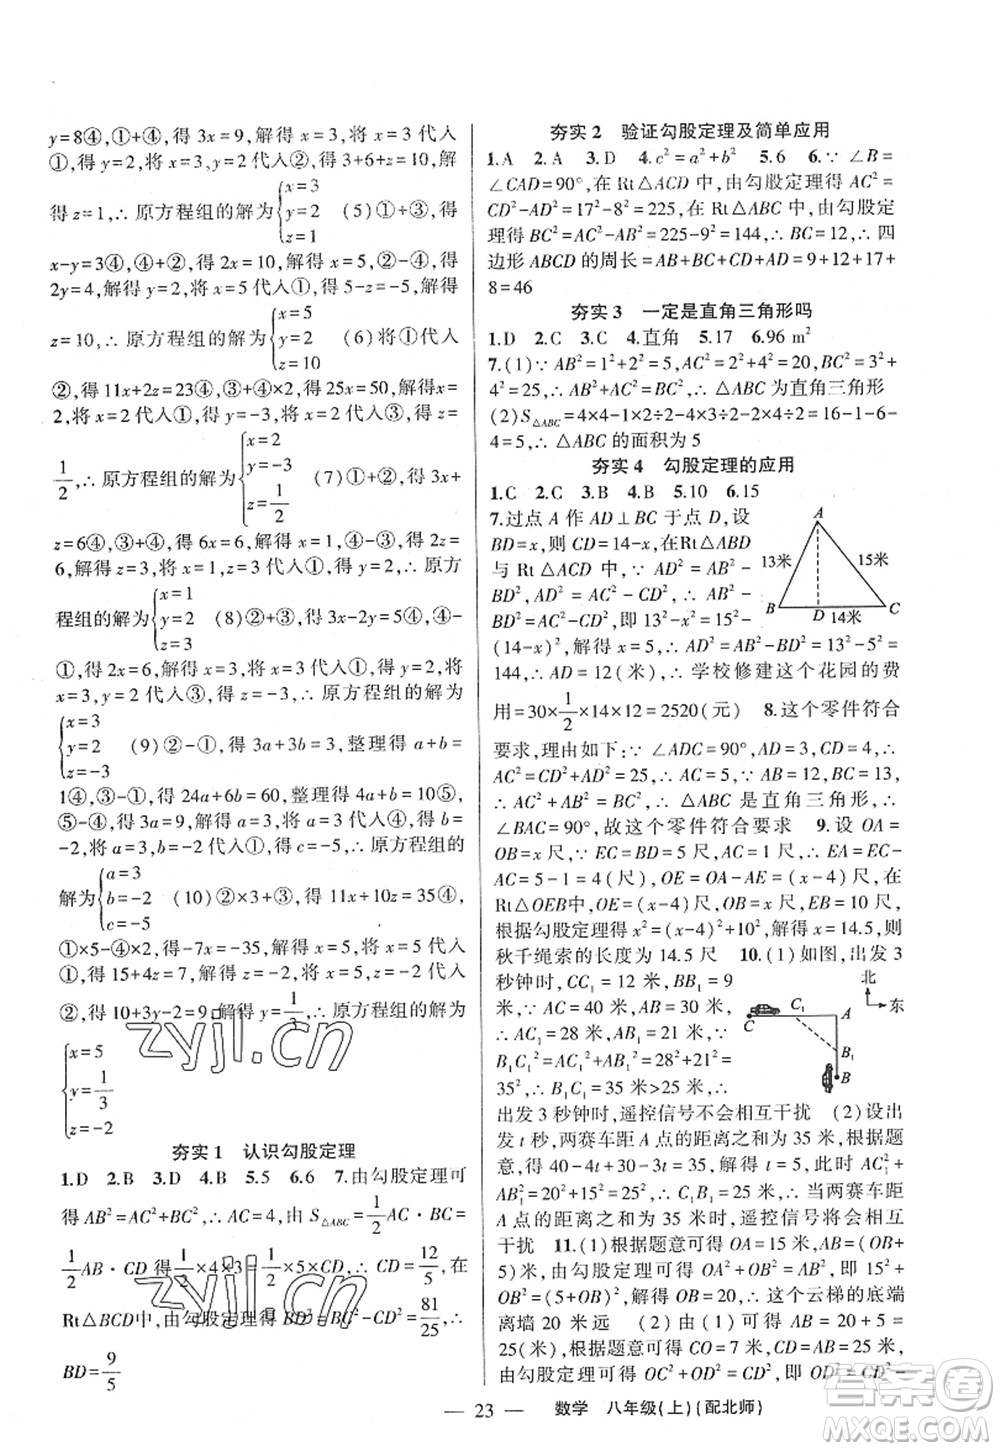 y=8④,①+④,得 3x=9,解得 x=3,将 x=3 代入
①,得 y=2,将 x=3,y=2 代入②,得 3+6-z=8,解
得 z=1,∴ 原方程组的解为{x=3 y=2 z=1 (5)①+③,得
x-y=3④,④+②,得 2x=10,解得 x=5,∴
2y=4,解得 y=2,将 x=5,y=2 代入①,得
z=10,∴ 原方程组的解为{x=5 y=2 z=10 (6)将①代入
②,得 11x+2z=23④,④+③×2,得 25x=50,解得x=
2,将 x=2 代入①,得 y=-3,将 x=2 代入③,得 z=
1/2,∴ 原方程组的解为{x=2 y=-3 z=1/2 (7)①+②,得 3x+
z=6④,③+④,得 6x=6,解得 x=1,④-③,得 2z=
6,解得 z=3,将 x=1,z=3 代入①,得 y=2,∴ 原方
程组的解为{x=1 y=2 z=3 (8)②+③,得 3x-2y=5④,④-
①,得 2x=6,解得 x=3,将 x=3 代入①,得 y=2,将
x=3,y=2 代入③,得 z=-1,∴ 原方程组的解为
{x=3 y=2 z=-1 (9)②-①,得 3a+3b=3,整理得 a+b=
1④,③-①,得 24a+6b=60,整理得 4a+b=10⑤,
⑤-④,得 3a=9,解得 a=3,将 a=3 代入④,得 b=
-2,将 a=3,b=-2 代入①,得 c=-5,∴ 原方程组的
解为{a=3 b=-2 c=-5 (10)②×3+③,得 11x+10z=35④,
①×5-④×2,得 -7x=-35,解得 x=5,将 x=5 代入
①,得 15+4z=7,解得 z=-2,将 x=5,z=-2 代入
②,得 10+3y-2=9,解得 y=1/3,∴ 原方程组的解为
{x=5 y=1/3 z=-2
夯实 1 认识勾股定理
1.D 2.B 3.D 4.B 5.5 6.6 7.由勾股定理可
得 AB²=AC²+BC²,∴ AC=4,由 S△ABC=1/2AC·BC=
1/2AB·CD 得 1/2×4×3=1/2×5×CD,∴ CD=12/5,在
Rt△BCD中,由勾股定理得 BD²=BC²-CD²=81/25,∴
BD=9/5
夯实 2 验证勾股定理及简单应用
1.A 2.A 3.D 4.c²=a²+b² 5.6 6.∵ ∠B=
∠CAD=90°,在 Rt△ACD 中,由勾股定理得 AC²=
CD²-AD²=17²-8²=225,在 Rt△ABC 中,由勾股定
理得 BC²=AC²-AB²=225-9²=144,∴ BC=12,∴ 四
边形 ABCD 的周长=AB+BC+CD+AD=9+12+17+
8=46
夯实 3 一定是直角三角形吗
1.D 2.C 3.C 4.直角 5.17 6.96 m²
7.(1)∵ AB²=1²+2²=5,AC²=2²+4²=20,BC²=3²+
4²=25,∴ AB²+AC²=BC²,∴ △ABC 为直角三角形
(2)S△ABC=4×4-1×2÷2-4×3÷2-2×4÷2=16-1-6-
4=5,∴ △ABC 的面积为 5
夯实 4 勾股定理的应用
1.C 2.C 3.B 4.B 5.10 6.15
7.过点 A 作 AD⊥BC 于点 D,设
BD=x,则 CD=14-x,在Rt△ABD
与 Rt△ACD 中,∵ AD²=AB²-
BD²,AD²=AC²-CD²,∴ AB²-
BD²=AC²-CD²,即 13²-x²=15²-
(14-x)²,解得 x=5,∴ AD²=AB²-BD²=13²-5²=
144,∴ AD=12(米),∴ 学校修建这个花园的费
用=30×1/2×14×12=2520(元) 8.这个零件符合
要求,理由如下:∵ ∠ADC=90°,AD=3,CD=4,∴
AC²=CD²+AD²=25,∴ AC=5,∵ AB=12,BC=13,
∴ AC²+AB²=BC²,∴ △ABC 是直角三角形,∴
∠BAC=90°,故这个零件符合要求 9.设 OA=
OB=x 尺,∵ EC=BD=5 尺,AC=1 尺,∴ EA=EC-
AC=5-1=4(尺),OE=OA-AE=(x-4)尺,在
Rt△OEB中,OE=(x-4)尺,OB=x 尺,EB=10 尺,
根据勾股定理得 x²=(x-4)²+10²,解得 x=14.5,则
秋千绳索的长度为 14.5 尺 10.(1)如图,出发 3
秒钟时,CC₁=12 米,BB₁=9
米,∵ AC=40 米,AB=30 米,∴
AC₁=28 米,AB₁=21 米,∴
B₁C₁²=AC₁²+AB₁²=28²+21²=
35²,∴ B₁C₁=35 米>25 米,∴
出发 3 秒钟时,遥控信号不会相互干扰 (2)设出
发 t 秒,两赛车距 A 点的距离之和为 35 米,根据题
意,得 40-4t+30-3t=35,解得 t=5,此时 AC₁=20,
AB₁=15,此时 B₁C₁²=AC₁²+
AB₁²=20²+15²=25²,∴ B₁C₁=25,∴ 当两赛车距
A 点的距离之和为 35 米时,遥控信号将会受到相互
干扰 11.(1)根据题意可得 OA=15 米,AB-OB=
5)米,由勾股定理可得 OA²+OB²=AB²,即 15²+
OB²=(5+OB)²,解得 OB=20,∴ 这个云梯的底端
离墙 20 米远 (2)由(1)可得,AB=20+5=
25(米),根据题意可得 CO=7 米,CD=AB=25 米,
由勾股定理可得 OC²+OD²=CD²,即 7²+OD²=
A
13米
15米
B
D
14米
C
北
东
C
C₁
A
B₁
B
zyjl.cn
zyjl.cn
答案圈
MXQE.COM
— 23 — 数学 八年级(上)(配北师)